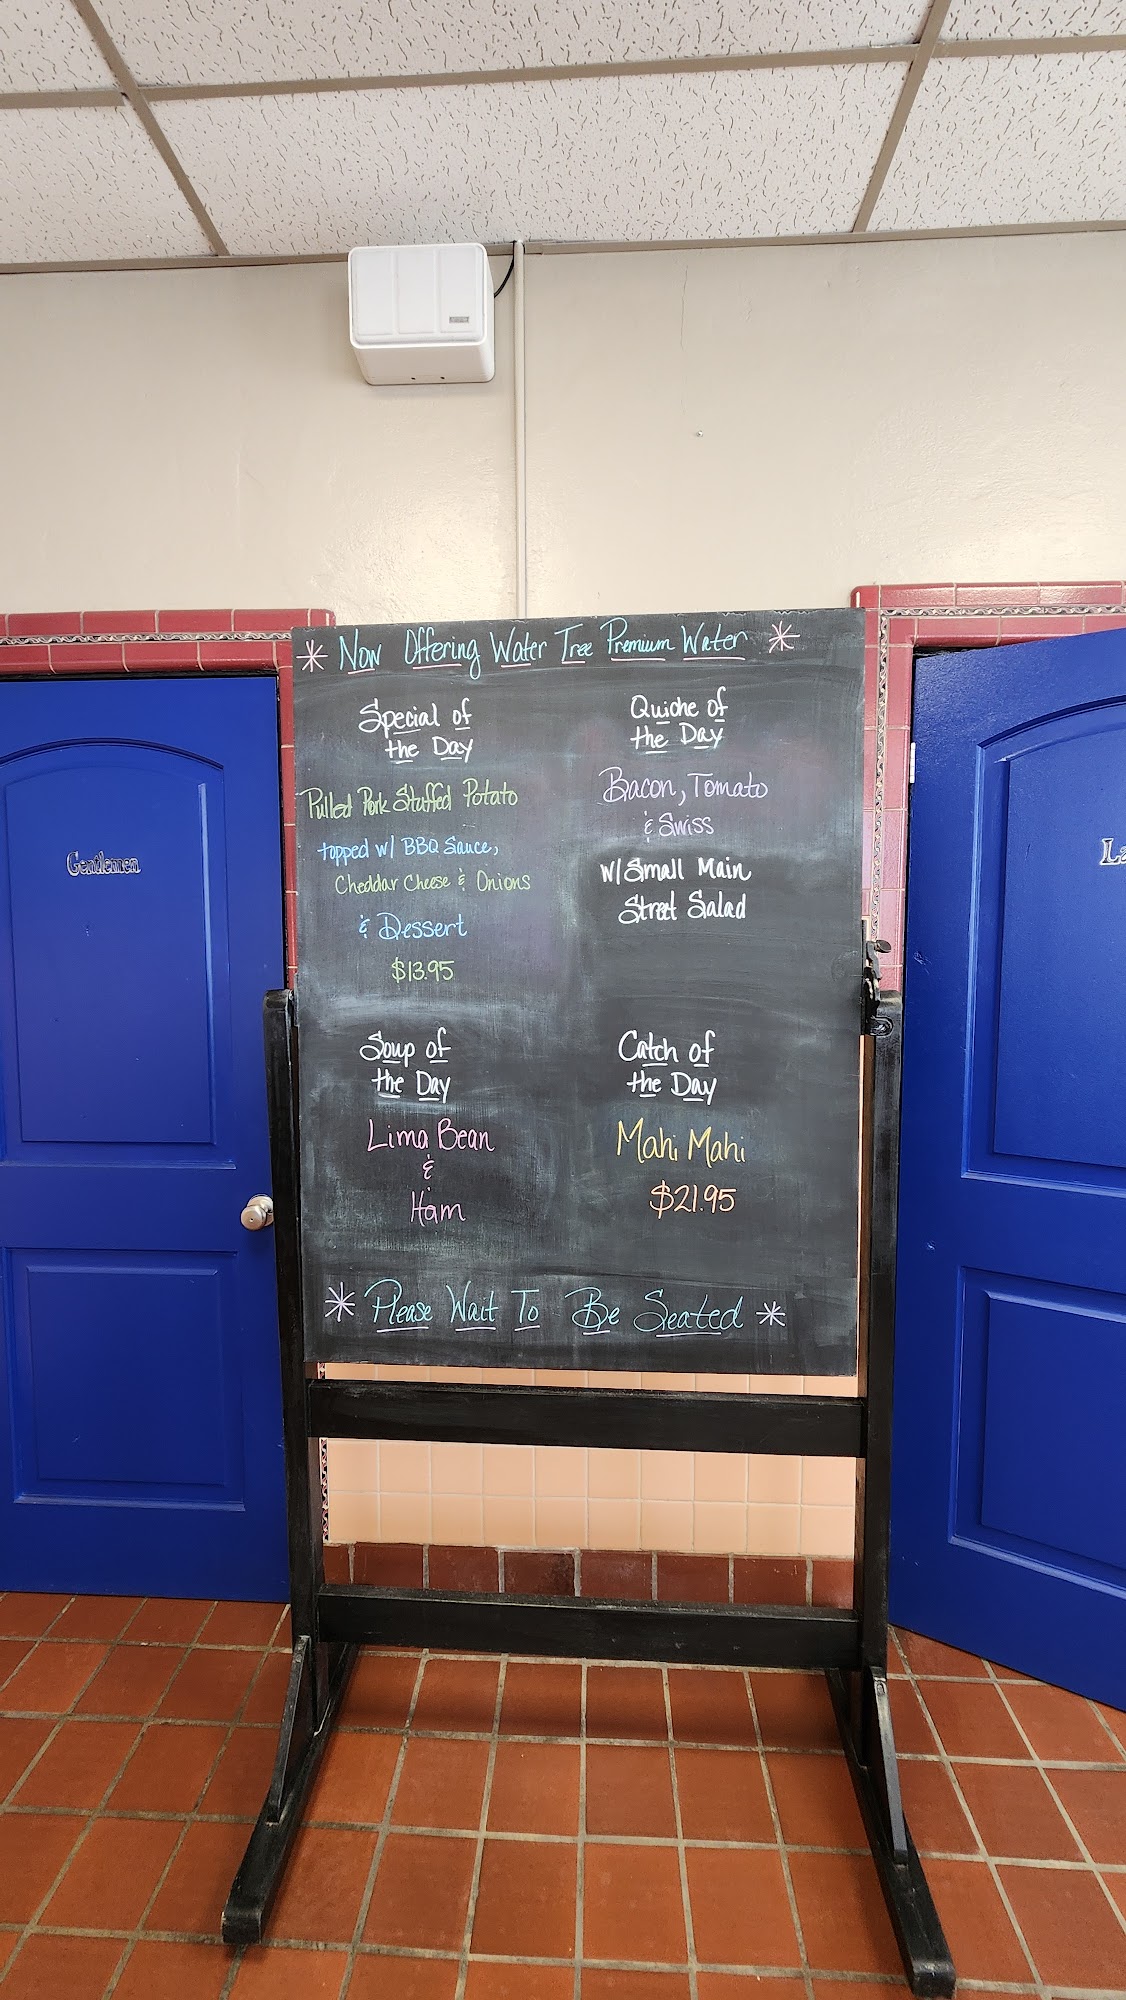 * Now Offering Water Tree Premium Water *
Special of
the Day
Pulled Pork Stuffed Potato
topped w/ BBQ Sauce,
Cheddar Cheese & Onions
& Dessert
$13.95
Quiche of
the Day
Bacon, Tomato
& Swiss
w/ Small Main
Street Salad
Soup of
the Day
Lima Bean
&
Ham
Catch of
the Day
Mahi Mahi
$21.95
* Please Wait To Be Seated *
Gentlemen
La